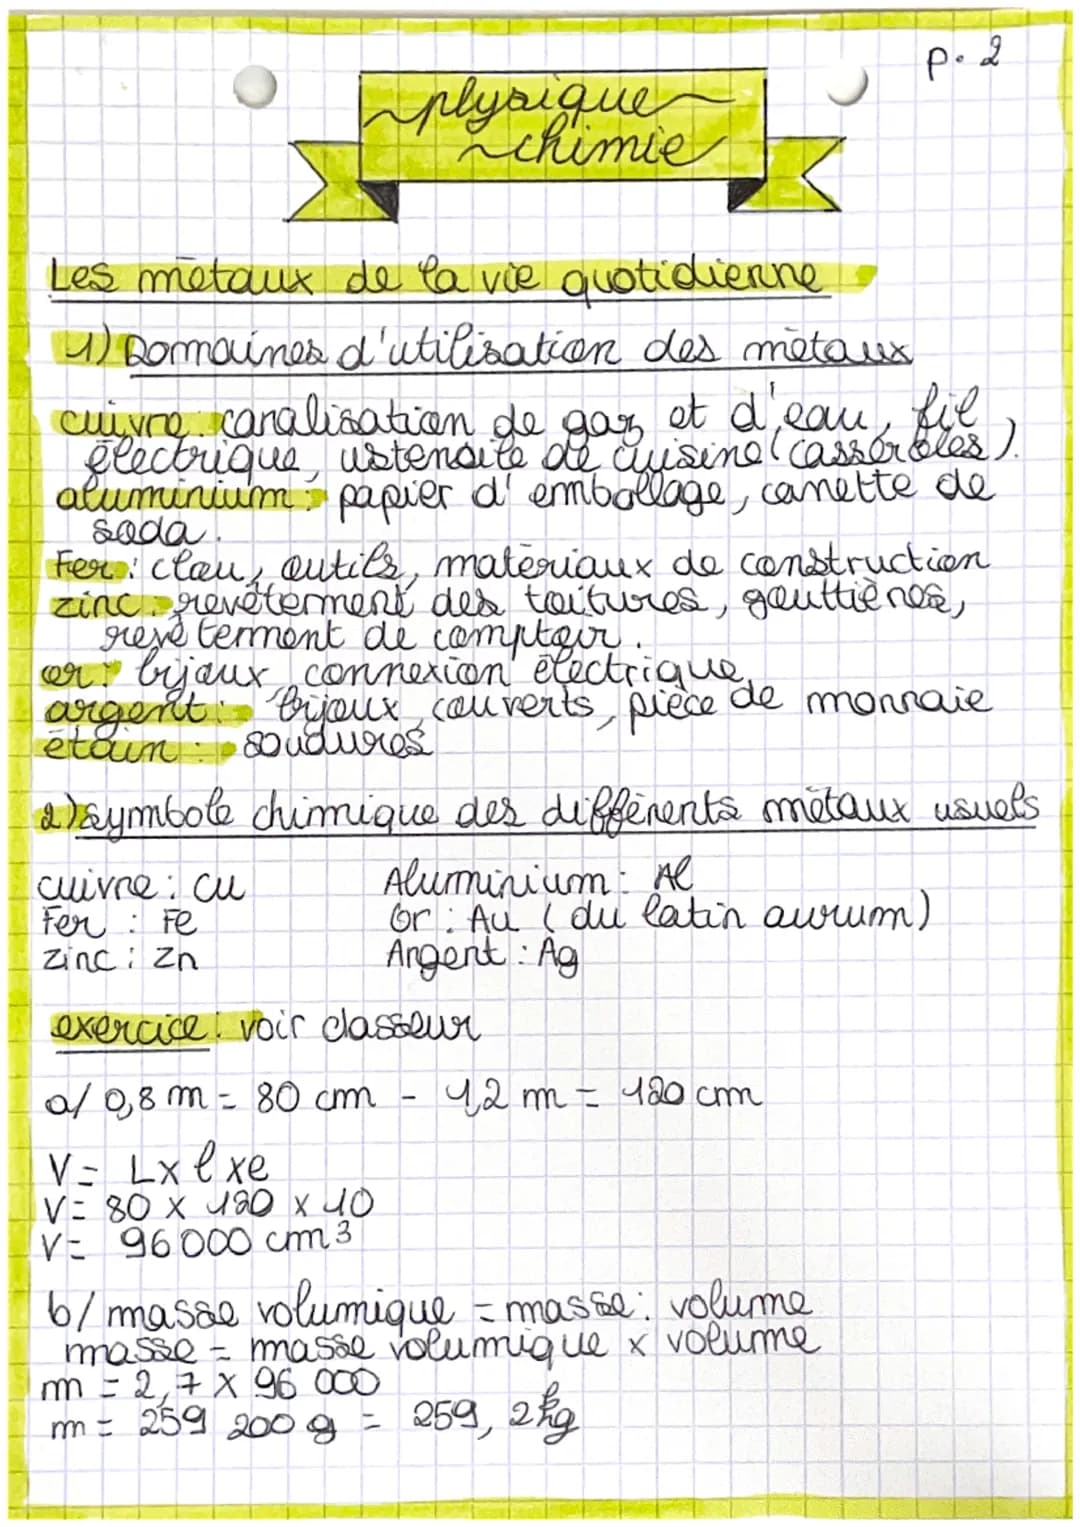 p. 2
physique
chimie
Les métaux de la vie quotidienne
1) Domaines d'utilisation des métaux
cuivre: canalisation de gaz et d'eau, fil
électrique, ustensile de cuisine (casseroles).
aluminium: papier d'emballage, canette de
soda.
Fer: clou, outils, matériaux de construction
zinc: revêtement des toitures, gouttières,
revêtement de comptoir.
or: bijoux, connexion électrique,
argent: bijoux, couverts, pièce de monnaie
étain: soudures
2) symbole chimique des différents métaux usuels
cuivre: Cu Aluminium: Al
Fer : Fe Or : Au (du latin aurum)
zinc: Zn Argent: Ag
exercice: voir classeur
a/ 0,8 m = 80 cm - 1,2 m = 120 cm
V = L x l x e
V = 80 x 120 x 10
V = 96 000 cm³
b/ masse volumique = masse: volume
masse = masse volumique x volume
m = 2,7 x 96 000
m = 259 200 g = 259,2 kg